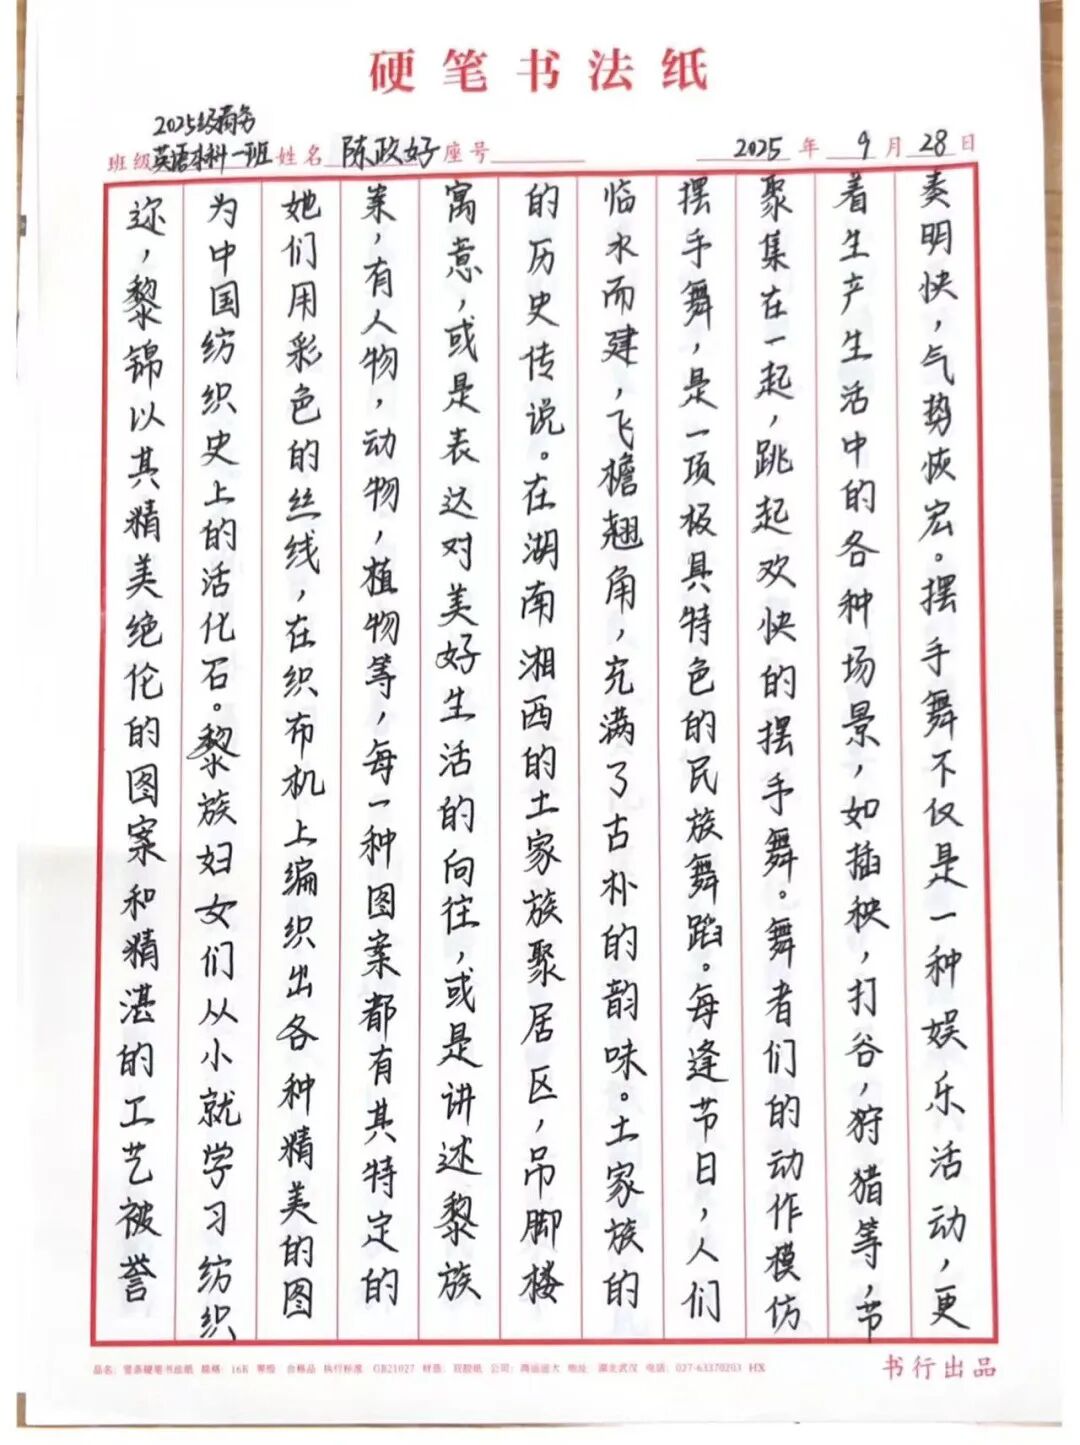 硬笔书法纸
2025级商务
班级英语本科一班 姓名 陈政好 座号 2025 年 9 月 28 日
迩，黎锦以其精美绝伦的图案和精湛的工艺被誉
为中国纺织史上的活化石。黎族妇女们从小就学习纺织
她们用彩色的丝线，在织布机上编织出各种精美的图
案，有人物，动物，植物等，每一种图案都有其特定的
寓意，或是表达对美好生活的向往，或是讲述黎族
的历史传说。在湖南湘西的土家族聚居区，吊脚楼
临水而建，飞檐翘角，充满了古朴的韵味。土家族的
摆手舞，是一项极具特色的民族舞蹈。每逢节日，人们
聚集在一起，跳起欢快的摆手舞。舞者们的动作模仿
着生产生活中的各种场景，如插秧，打谷，狩猎等，节
奏明快，气势恢宏。摆手舞不仅是一种娱乐活动，更
品名：竖条硬笔书法纸 规格：16K 等级：合格品 执行标准：GB21027 材质：双胶纸 公司： 地址：湖北武汉 电话：027-63370203 HX
书行出品